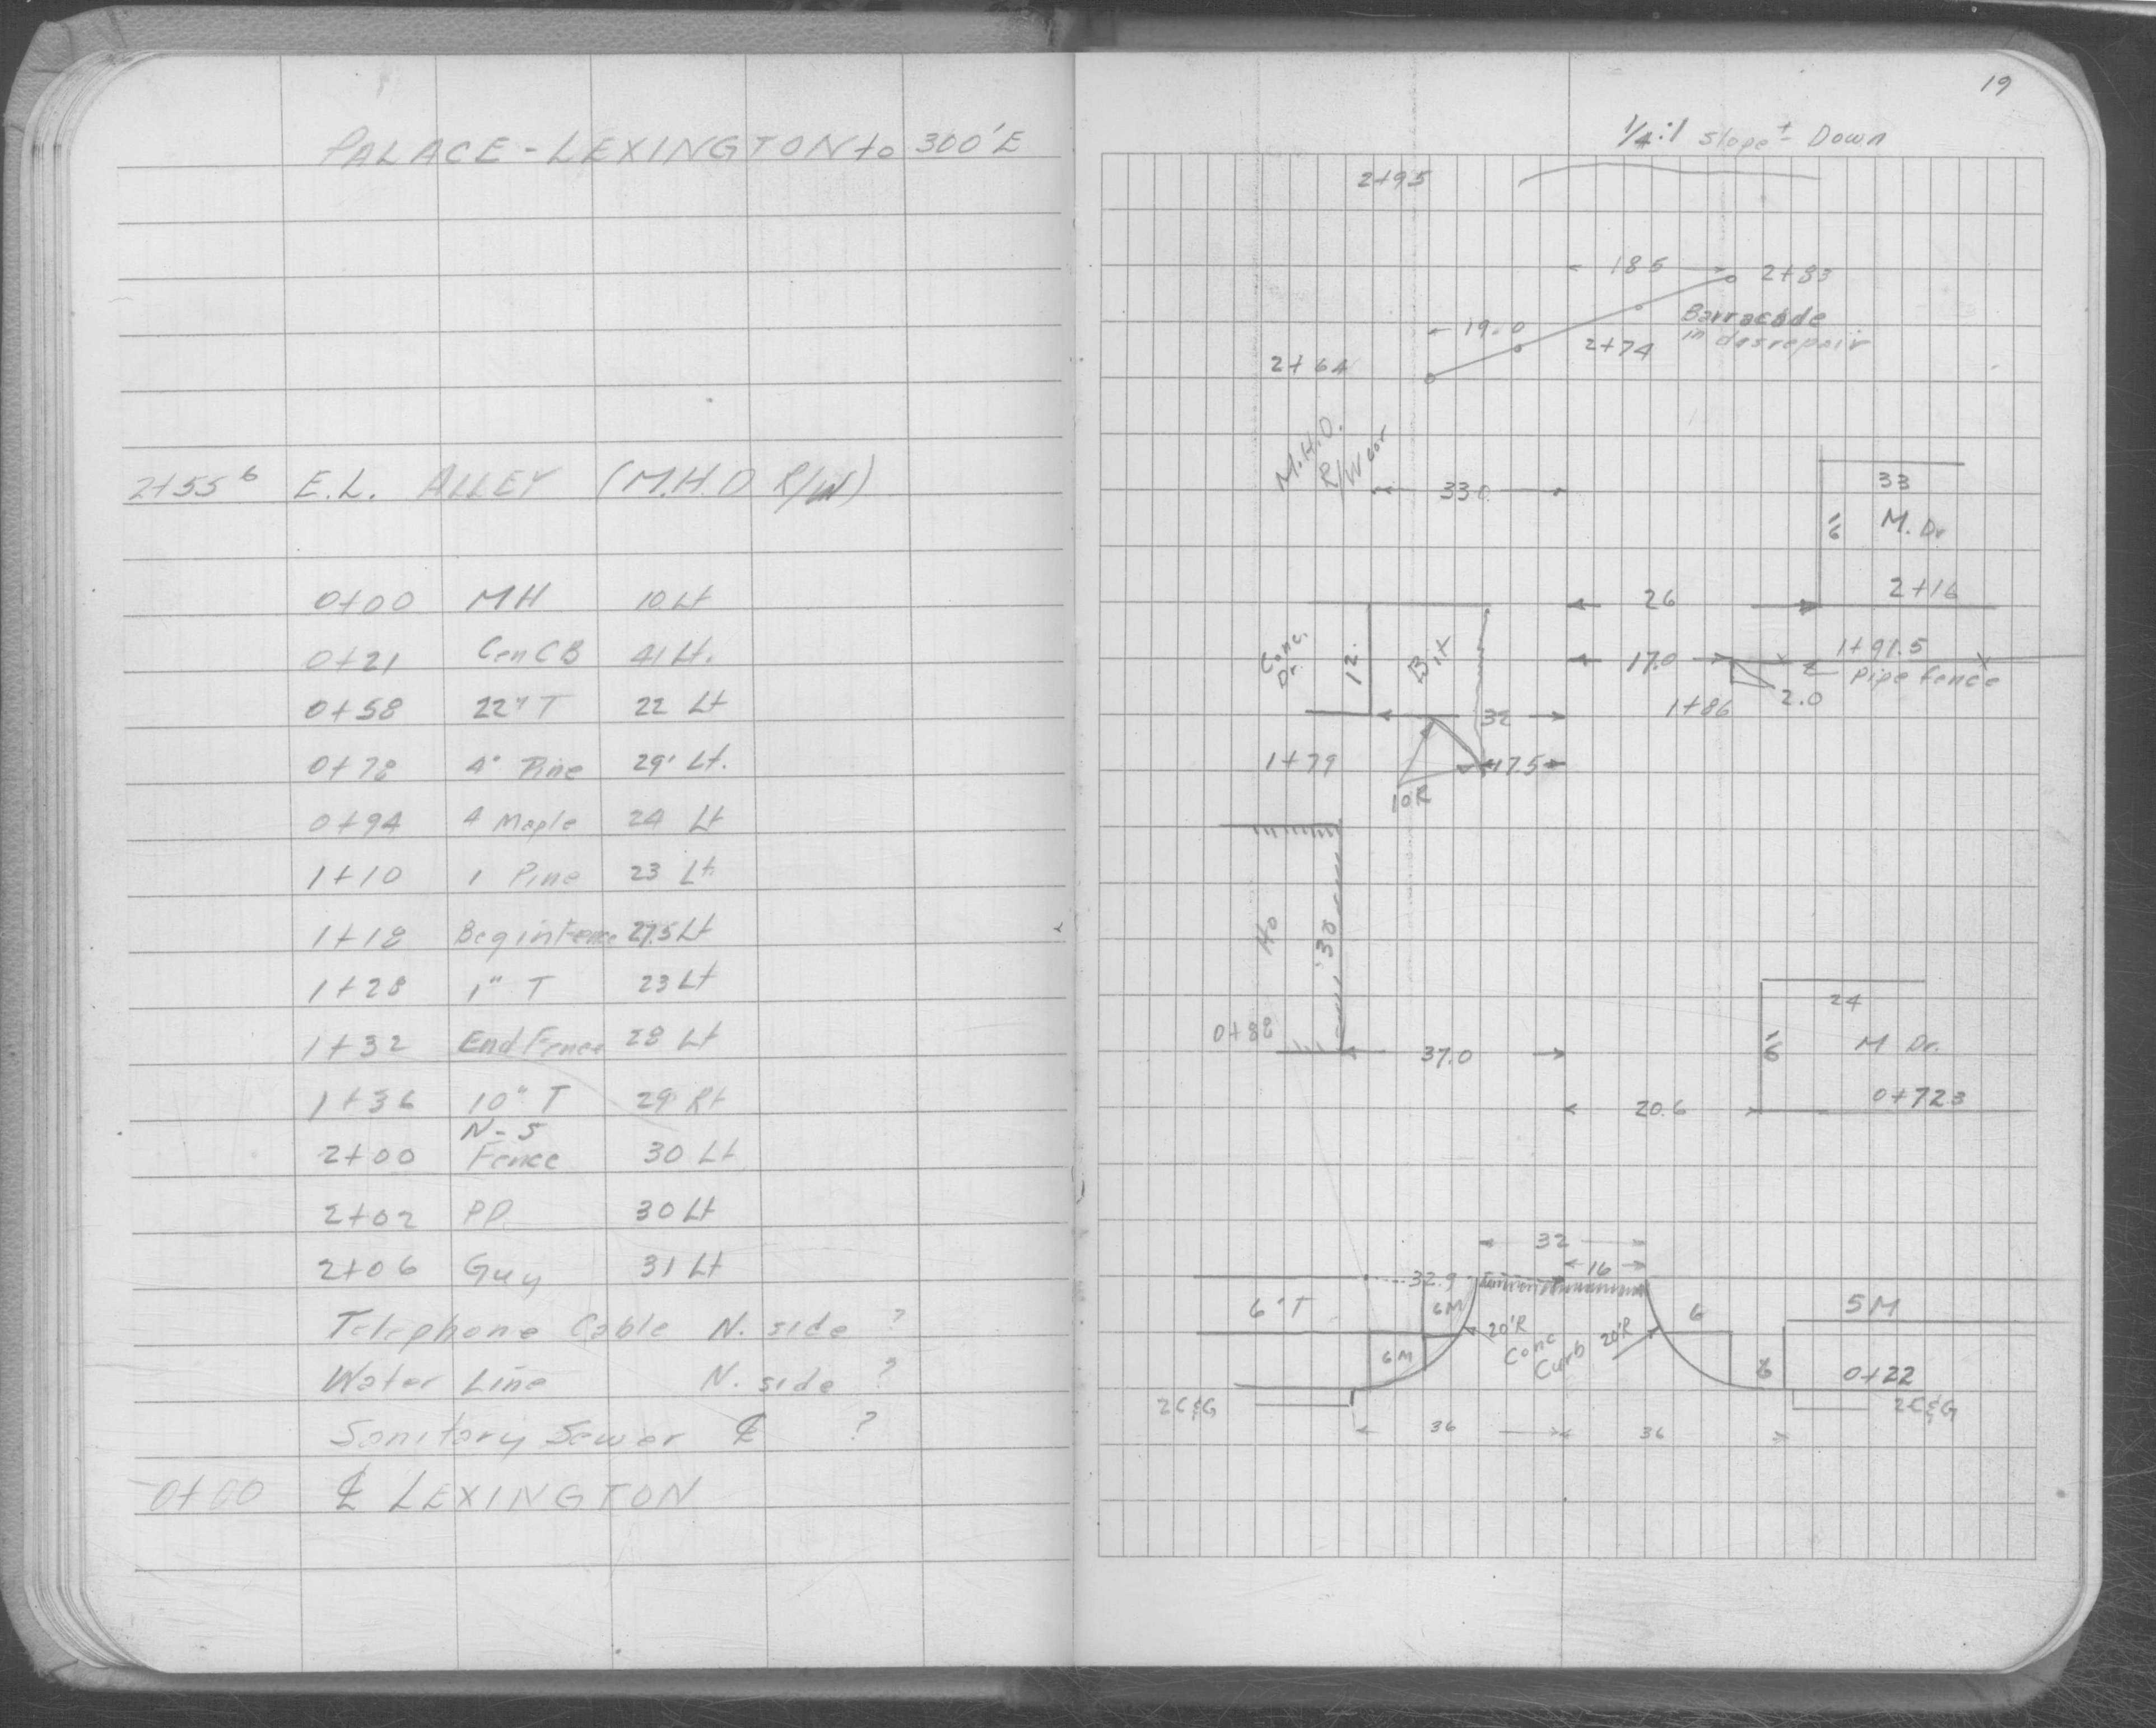 PALACE - LEXINGTON to 300'E
2+55⁶ E.L. ALLEY (M.H.D R/W)
0+00 MH 10 Lt
0+21 Cen CB 41 Lt.
0+58 22" T 22 Lt
0+78 4" Pine 29' Lt.
0+94 4 Maple 24 Lt
1+10 1 Pine 23 Lt
1+18 Begin Fence 27.5 Lt
1+28 1" T 23 Lt
1+32 End Fence 28 Lt
1+36 10" T 29 Rt
N-S
2+00 Fence 30 Lt
2+02 PP 30 Lt
2+06 Guy 31 Lt
Telephone Cable N. side ?
Water Line N. side ?
Sanitary Sewer ℄ ?
0+00 ℄ LEXINGTON
19
1/4:1 Slope ± Down
2+95
18.5 2+83
19.0 Barracade
2+74 in desrepair
2+64
M.H.D.
R/W cor
33.0
33
16 M. Dr
2+16
26
Conc. Dr. 12. Bit
17.0 1+91.5
Pipe fence
2.0
1+86
32
1+79 17.5
10R
Ho 30'
24
0+88 37.0 16 M Dr.
20.6 0+723
32
16
32.9
6'T 6M 6 5M
20'R Conc Curb 20'R
6M 8 0+22
2C&G 2C&G
36 36